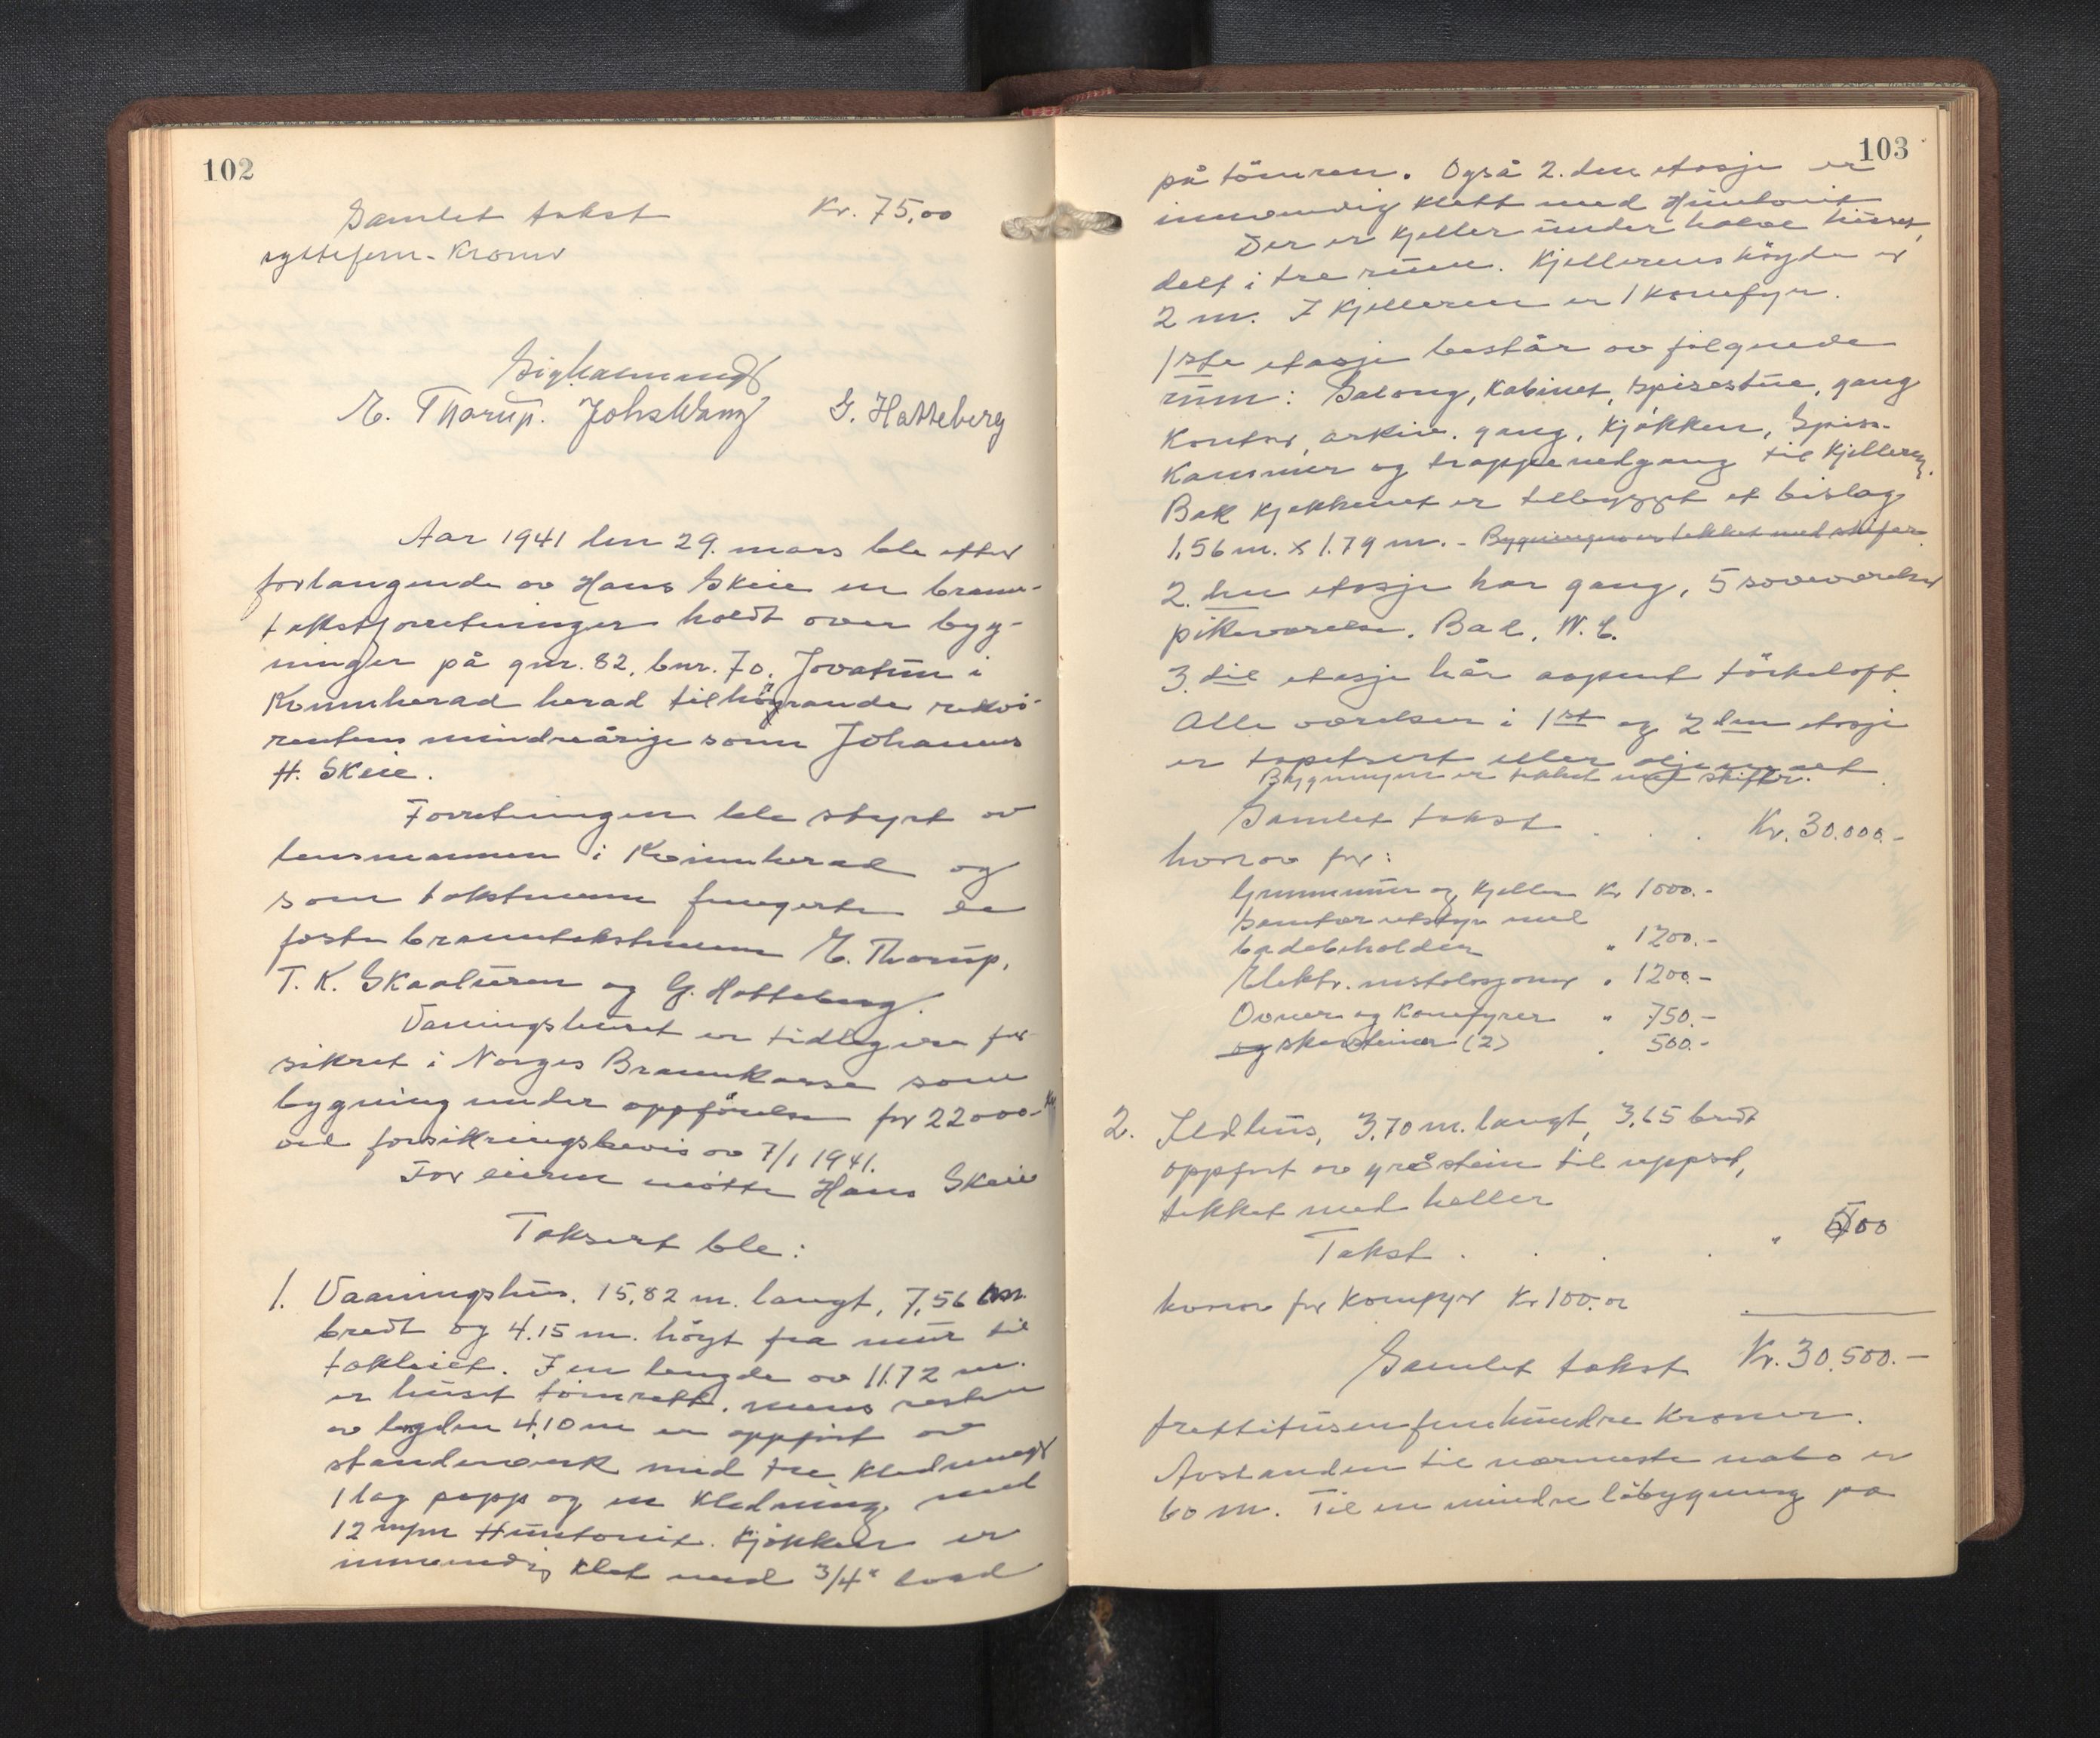 102
Samlet takst Kr. 75,00
syttifem - Kroner
E. Thorup. Johs Wang G. Hatteberg
Aar 1941 den 29. mars ble etter
forlangende av Hans Skeie en brann-
takstforretninger holdt over byg-
ninger på gnr. 82, bnr. 70, Jovatun i
Kvinnherad herad tilhørande rekvi-
rentens mindreårige sønn Johannes
H. Skeie.
Forretningen ble styrt av
lensmannen i Kvinnherad og
som takstmenn fungerte de
faste branntakstmenn E. Thorup,
T. K. Skaaluren og G. Hatteberg.
Vaningshuset er tidligere for-
sikret i Norges Brannkasse som
bygning under oppførelse for 22000.- Kr
ved forsikringsbevis av 7/1 1941.
For eieren møtte Hans Skeie
Taksert ble:
1. Vaaningshus. 15,82 m. langt, 7,56 m.
bredt og 4.15 m. høgt fra mur til
takleiet. I en lengde av 11.72 m.
er huset tømrett, mens resten
av lengden 4,10 m er oppført av
standerverk med tre kledninger
1 lag papp og en kledning med
12 m/m Huntonit. Kjøkken er
innvendig kled med 3/4" bord
103
på tømren. Også 2.den etasje er
innvendig kledt med Huntonit
Der er kjeller under halve huset,
delt i tre rum. Kjellerens høyde er
2 m. I kjelleren er 1 komfyr.
1ste etasje består av følgnede
rum: Salong, Kabinet, spisestue, gang
Kontor, arkiv. gang, Kjøkken, Spis-
Kammer og trappenedgang til Kjelleren.
Bak kjøkkenet er tilbygget et bislag
1,56 m. x 1.79 m. - Bygningen er tekket med skifer.
2. den etasje har gang, 5 soveværelser
pikeværelse, Bad, W.C.
3. die etasje har aapent tørkeloft
Alle værelser i 1st og 2den etasje
er tapetsert eller oljemalt
Bygningen er tekket med skifer.
Samlet takst . . . Kr. 30.000.-
hvorav for:
Grunnmur og kjeller Kr 1000.-
Sanitær utstyr med
badebeholder " 1200.-
Elektr. installasjoner " 1200.-
Ovner og Komfyrer " 750.-
og skorsteiner (2) " 500.-
2. Ildhus, 3,70 m. langt, 3,65 bredt
oppført av gråstein til uppset,
tekket med heller
Takst . . . . " 500
hvorav for komfyr Kr 100.00
Samlet takst Kr. 30.500.-
trettitusenfemhundre Kroner.
Avstanden til nærmeste nabo er
60 m. Til en mindre løbygning på